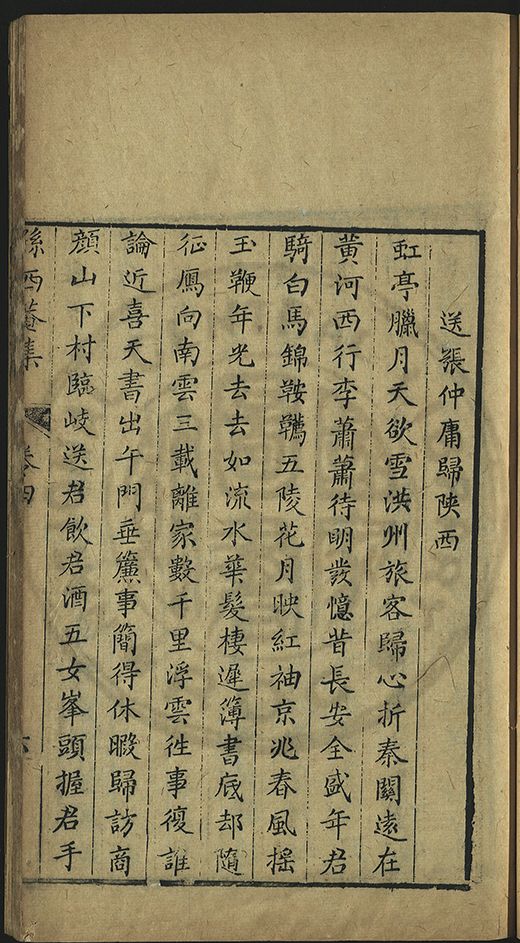 送張仲庸歸陜西
虹亭臘月天欲雪洪州旅客歸心折秦關遠在
黄河西行李蕭蕭待明發憶昔長安全盛年君
騎白馬錦鞍韉五陵花月映紅袖京兆春風揺
玉鞭年光去去如流水華髮棲遲簿書底却隨
征鳳向南雲三載離家數千里浮雲徃事復誰
論近喜天書出午門垂簾事簡得休暇歸訪商
顔山下村臨岐送君飲君酒五女峯頭握君手
孫西菴集 卷四 六